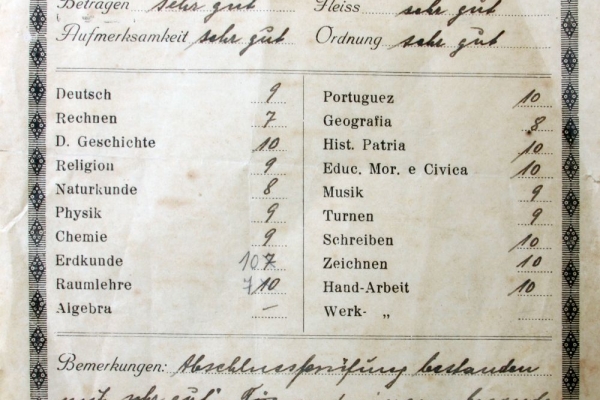 Betragen sehr gut Fleiss sehr gut
Aufmerksamkeit sehr gut Ordnung sehr gut
Deutsch 9
Rechnen 7
D. Geschichte 10
Religion 9
Naturkunde 8
Physik 9
Chemie 9
Erdkunde 10 7
Raumlehre 7 10
Algebra —
Portuguez 10
Geografia 8
Hist. Patria 10
Educ. Mor. e Civica 10
Musik 9
Turnen 9
Schreiben 10
Zeichnen 10
Hand-Arbeit 10
Werk- „
Bemerkungen: Abschlussprüfung bestanden
mit „sehr gut“